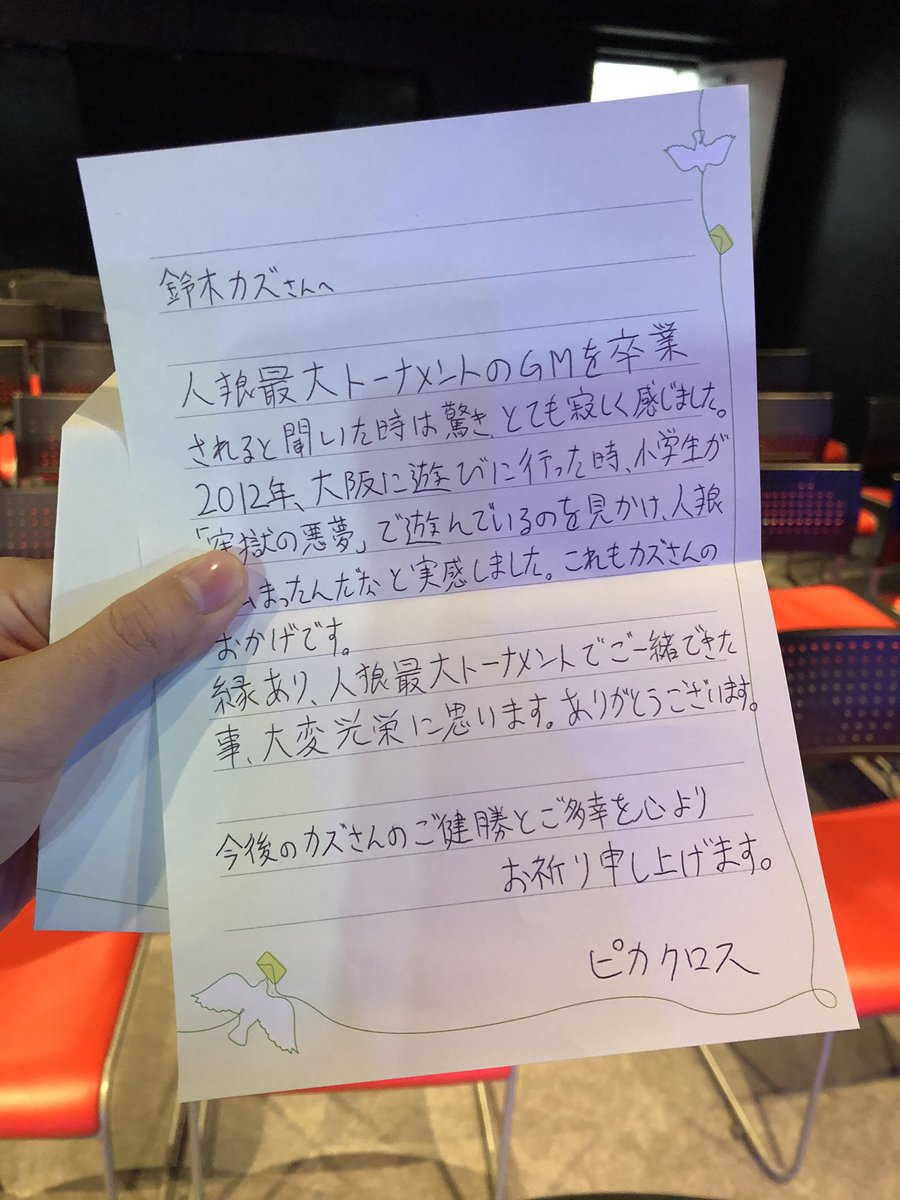 鈴木カズさんへ
人狼最大トーナメントのGMを卒業
されると聞いた時は驚き、とても寂しく感じました。
2012年、大阪に遊びに行った時、小学生が
「牢獄の悪夢」で遊んでいるのを見かけ、人狼
まったんだな と実感しました。これもカズさんの
おかげです。
縁あり、人狼最大トーナメントでご一緒できた
事、大変光栄に思います。ありがとうございます。
今後のカズさんのご健勝とご多幸を心より
お祈り申し上げます。
ピカクロス